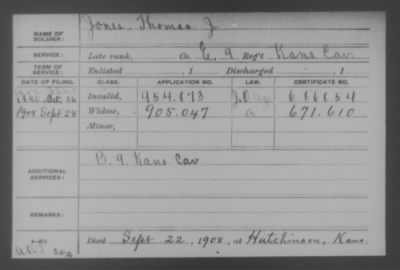 NAME OF SOLDIER: Jones, Thomas J.
SERVICE: Late rank, Co. E, 9 Reg't Kans Cav
TERM OF SERVICE: Enlisted , 1 Discharged , 1
DATE OF FILING. CLASS. APPLICATION NO. LAW. CERTIFICATE NO.
Invalid, 954.873
1908 Sept 28 Widow, 905.047 671.610
Minor,
ADDITIONAL SERVICES: B. 9 Kans Cav
REMARKS:
Died Sept 22, 1908, at Hutchinson, Kans.